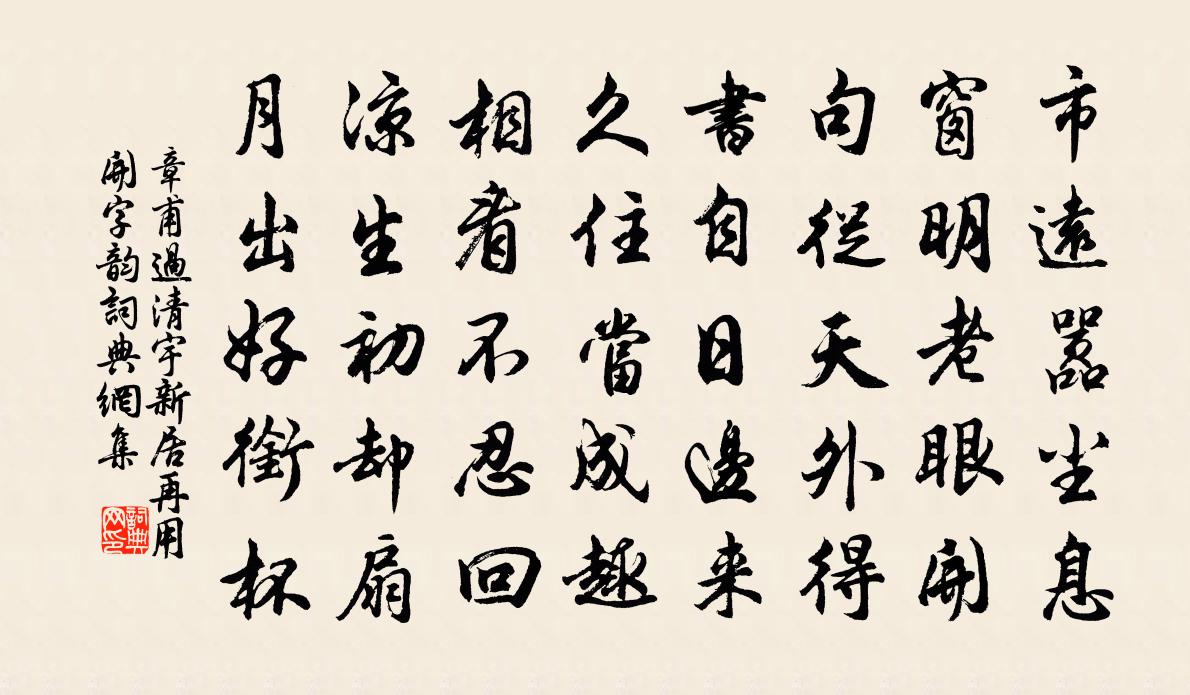 市遠囂尘息
窗明老眼開
句從天外得
書自日邊来
久住當成趣
相看不忍回
涼生初却扇
月出好銜杯
章甫過清宇新居再用
開字韵詞典網集
詞典
网